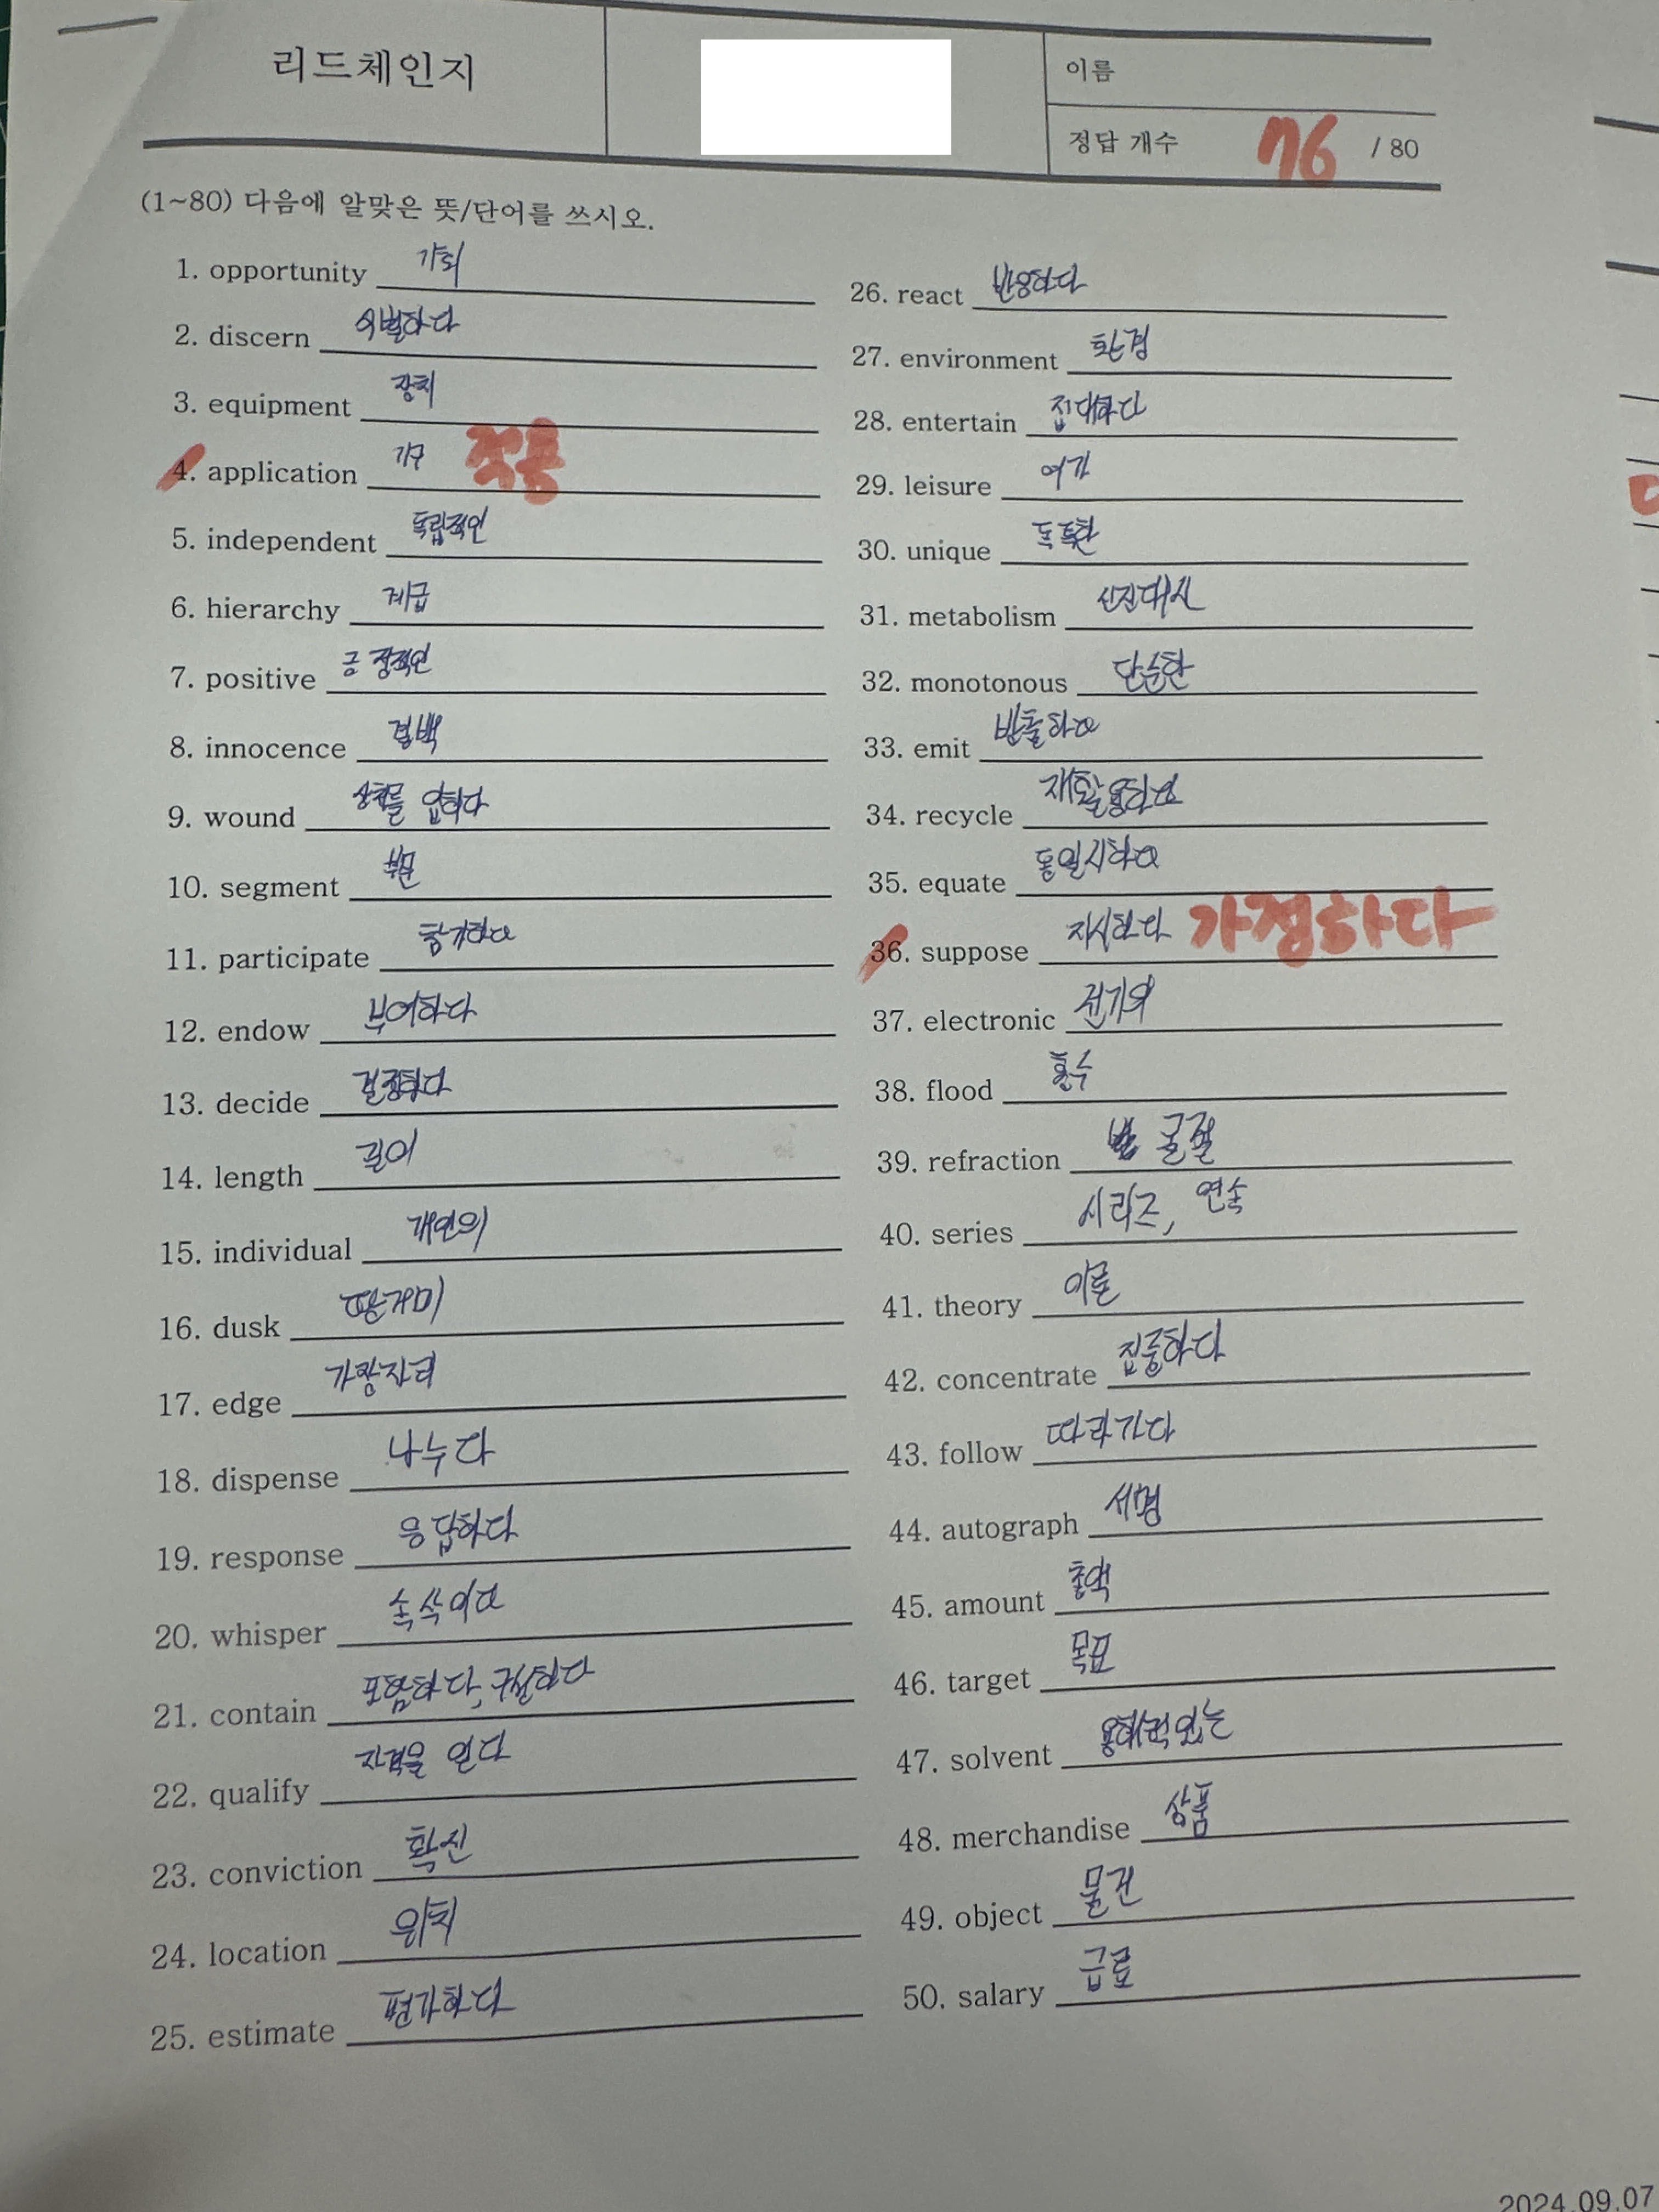 리드체인지
이름
정답 개수 76 / 80
(1~80) 다음에 알맞은 뜻/단어를 쓰시오.
1. opportunity 기회
2. discern 식별하다
3. equipment 장치
4. application 기구 적용
5. independent 독립적인
6. hierarchy 계급
7. positive 긍정적인
8. innocence 결백
9. wound 상처를 입히다
10. segment 부분
11. participate 참가하다
12. endow 부여하다
13. decide 결정하다
14. length 길이
15. individual 개인의
16. dusk 땅거미
17. edge 가장자리
18. dispense 나누다
19. response 응답하다
20. whisper 속삭이다
21. contain 포함하다,
22. qualify 자격을 얻다
23. conviction 확신
24. location 위치
25. estimate 평가하다
26. react 반응하다
27. environment 환경
28. entertain 접대하다
29. leisure 여가
30. unique 독특한
31. metabolism 신진대사
32. monotonous 단순한
33. emit 방출하다
34. recycle 재활용하다
35. equate 동일시하다
36. suppose 지시하다 가정하다
37. electronic 전기의
38. flood 홍수
39. refraction 굴절
40. series 시리즈, 연속
41. theory 이론
42. concentrate 집중하다
43. follow 따라가다
44. autograph 서명
45. amount 총액
46. target 목표
47. solvent 용해력 있는
48. merchandise 상품
49. object 물건
50. salary 급료
2024.09.07